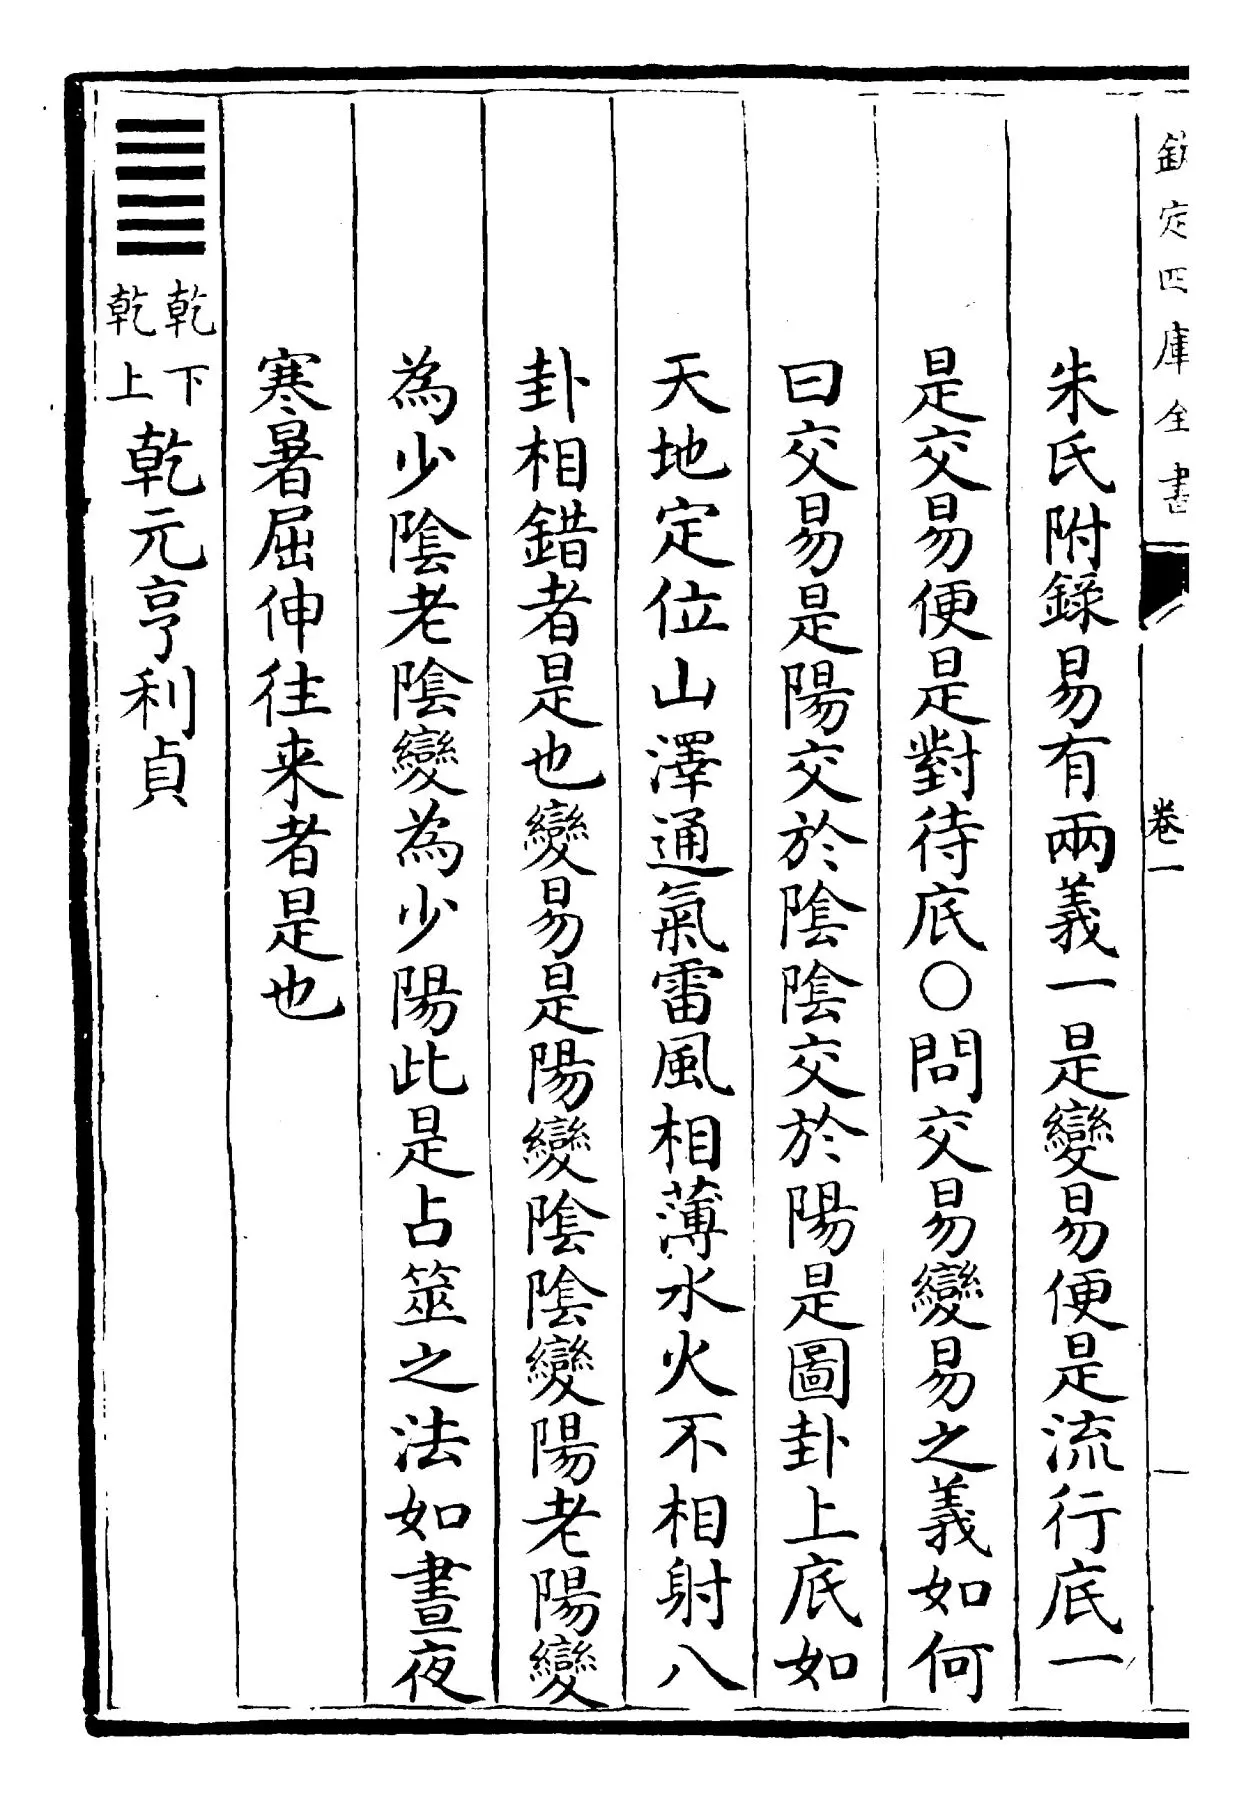 欽定四庫全書
卷一
朱氏附錄易有兩義一是變易便是流行底一
是交易便是對待底○問交易變易之義如何
曰交易是陽交於陰陰交於陽是圖卦上底如
天地定位山澤通氣雷風相薄水火不相射八
卦相錯者是也變易是陽變陰陰變陽老陽變
為少陰老陰變為少陽此是占筮之法如晝夜
寒暑屈伸往来者是也
乾下
乾上
乾元亨利貞